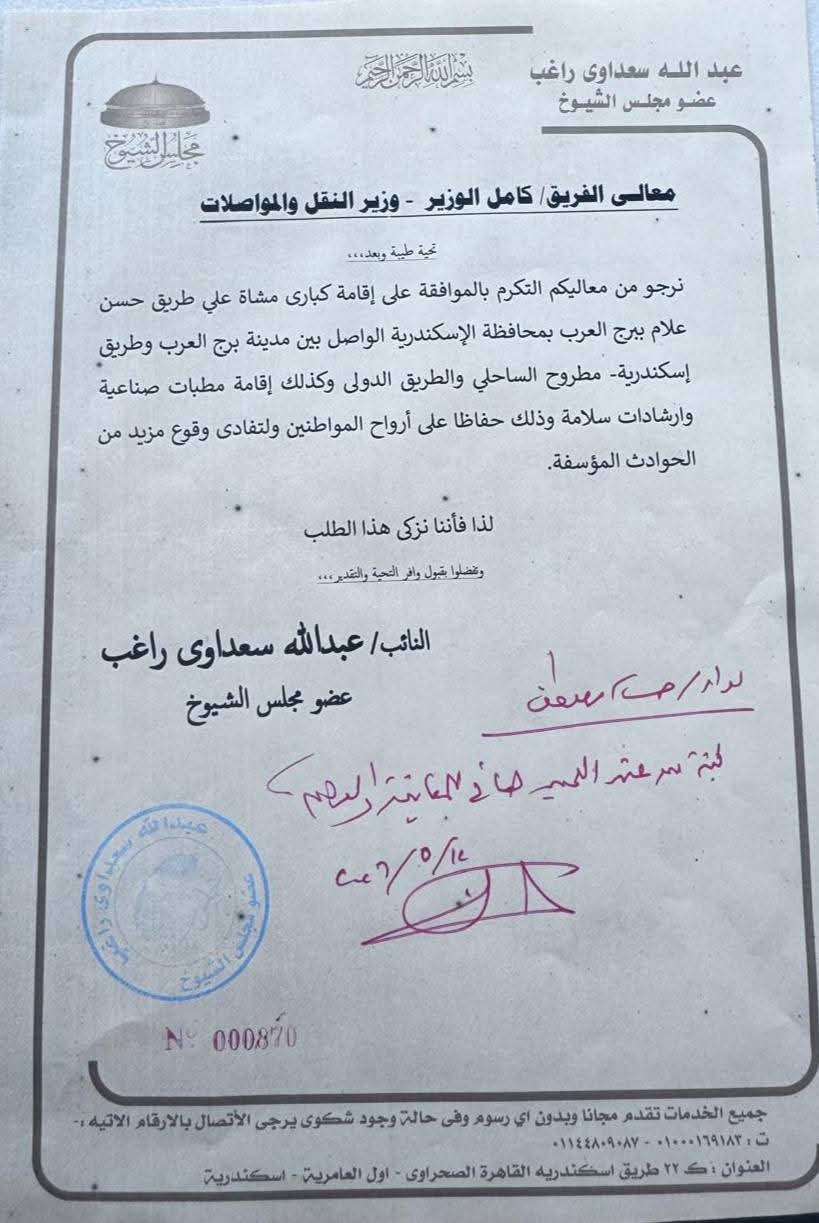 عبد اللـه سعداوى راغب
عضـو مجلـس الشيـوخ
بسم الله الرحمن الرحيم
مجلس الشيوخ
معالـى الفريق/ كامل الوزير - وزير النقل والمواصلات
تحية طيبة وبعد،،،
نرجو من معاليكم التكرم بالموافقة على إقامة كبارى مشاة علي طريق حسن
علام ببرج العرب بمحافظة الإسكندرية الواصل بين مدينة برج العرب وطريق
إسكندرية- مطروح الساحلي والطريق الدولى وكذلك إقامة مطبات صناعية
وارشادات سلامة وذلك حفاظا على أرواح المواطنين ولتفادى وقوع مزيد من
الحوادث المؤسفة.
لذا فأننا نزكى هذا الطلب
وتفضلوا بقبول وافر التحية والتقدير،،،
النائب/ عبدالله سعداوى راغب
عضو مجلس الشيوخ
عبدالله سعداوى راغب
عضو مجلس الشيوخ
Nº 000870
جميع الخدمات تقدم مجانا وبدون اي رسوم وفى حالة وجود شكوى يرجى الأتصال بالارقام الاتيه :-
ت : ٠١٠٠٠١٦٩١٨٣ - ٠١١٤٤٨٠٩٠٨٧
العنوان : ك ٢٢ طريق اسكندريه القاهرة الصحراوى - اول العامرية - اسكندرية